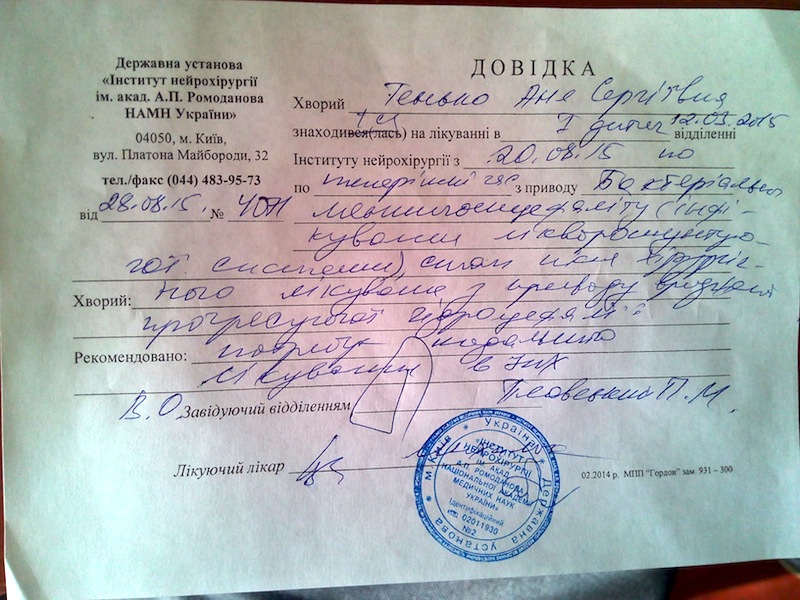 Державна установа
«Інститут нейрохірургії
ім. акад. А.П. Ромоданова
НАМН України»
04050, м. Київ,
вул. Платона Майбороди, 32
тел./факс (044) 483-95-73
від 28.08.15. №
ДОВІДКА
Хворий Аня Сергіївна
12.03.2015
знаходився(лась) на лікуванні в І дитяч відділенні
Інституту нейрохірургії з 20.08.15 по
по теперішній час з приводу Бактеріального
менінгоенцефаліту (інфі-
кування лікворошунтую-
чої системи), стан після хірургіч-
Хворий: ного лікування з приводу вродженої
прогресуючої гідроцефалії
Рекомендовано: подальшого
лікування в ІНХ
В.О. Завідуючий відділенням П.М.
Лікуючий лікар
02.2014 р. МПП "Гордон" зам. 931 – 300
Україна * Державна установа * м. Київ *
«ІНСТИТУТ
НЕЙРОХІРУРГІЇ
ІМ. АКАД.
А.П. РОМОДАНОВА
НАЦІОНАЛЬНОЇ АКАДЕМІЇ
МЕДИЧНИХ НАУК
УКРАЇНИ»
Ідентифікаційний
код 02011930
№2